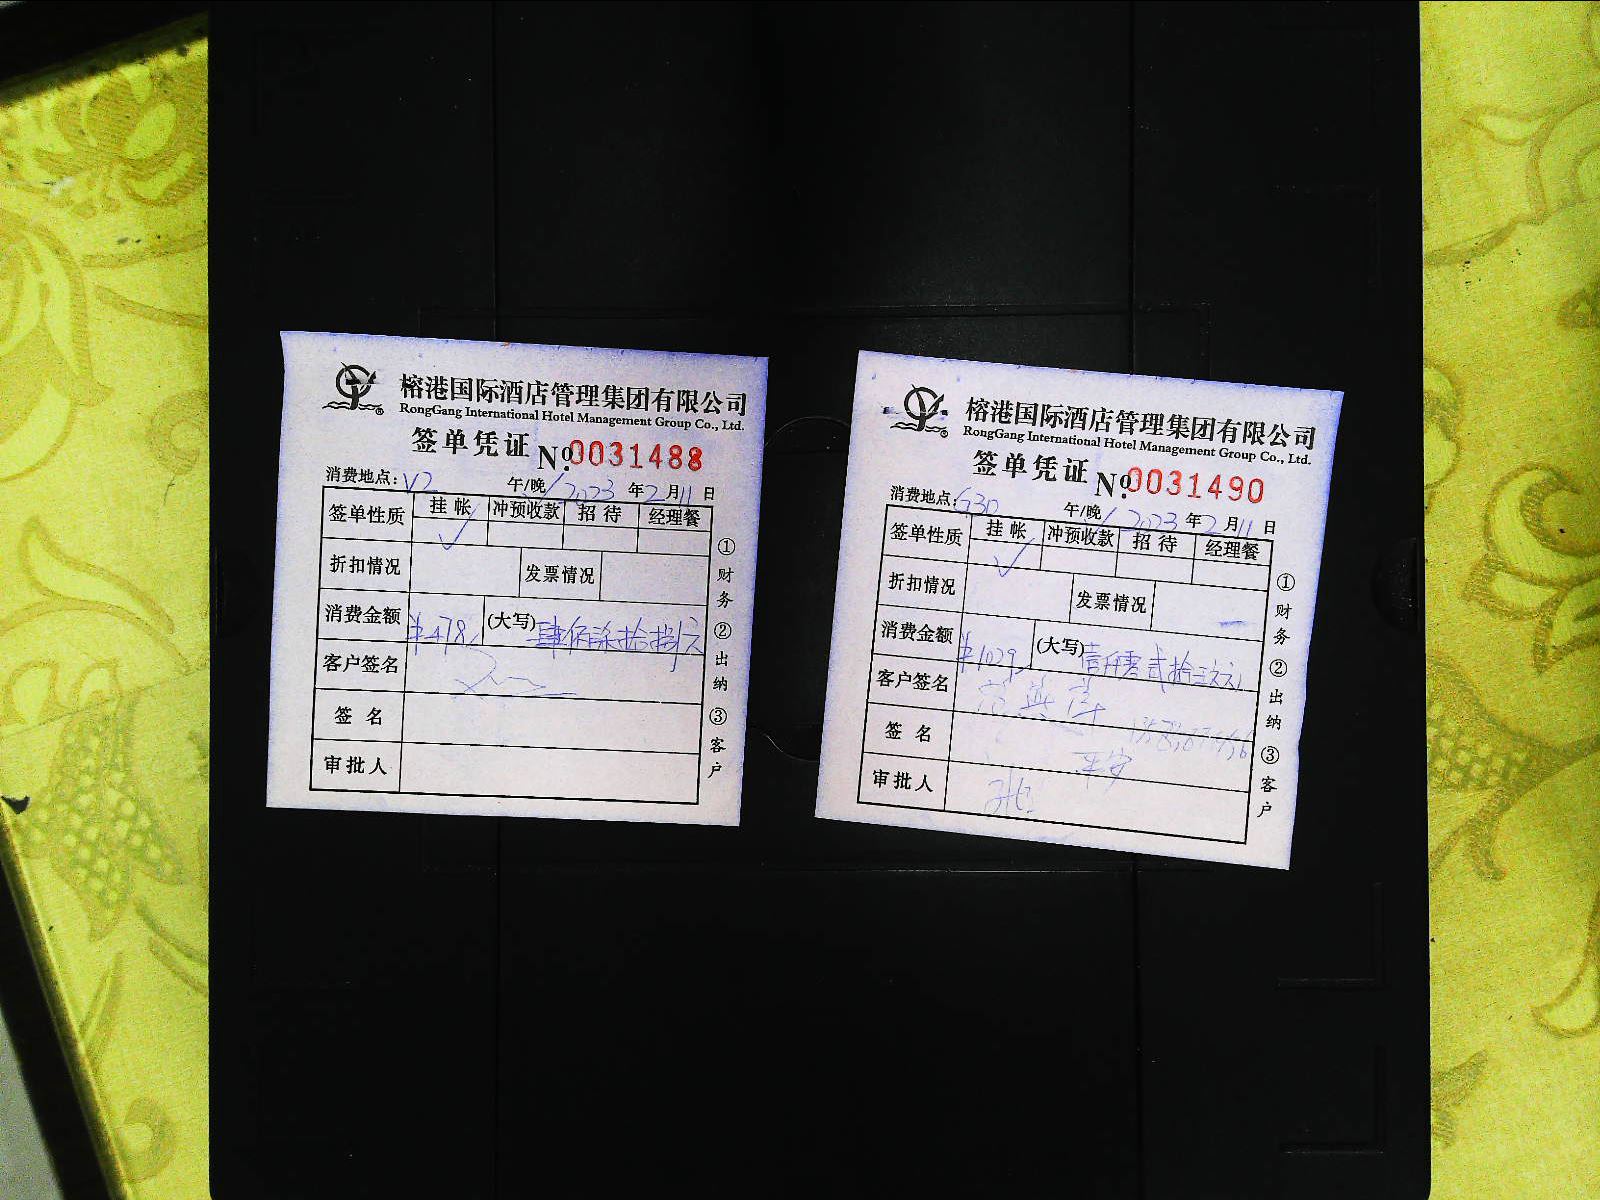 榕港国际酒店管理集团有限公司
RongGang International Hotel Management Group Co., Ltd.
签单凭证 №0031488
消费地点: V2 午/晚 2023年2月11日
签单性质 挂帐 冲预收款 招待 经理餐
✓
折扣情况 发票情况
消费金额 ¥478 (大写) 肆佰柒拾捌元
客户签名
签名
审批人
①财务 ②出纳 ③客户
榕港国际酒店管理集团有限公司
RongGang International Hotel Management Group Co., Ltd.
签单凭证 №0031490
消费地点: G30 午/晚 2023年2月11日
签单性质 挂帐 冲预收款 招待 经理餐
✓
折扣情况 发票情况
消费金额 (大写)
客户签名
签名
审批人
①财务 ②出纳 ③客户